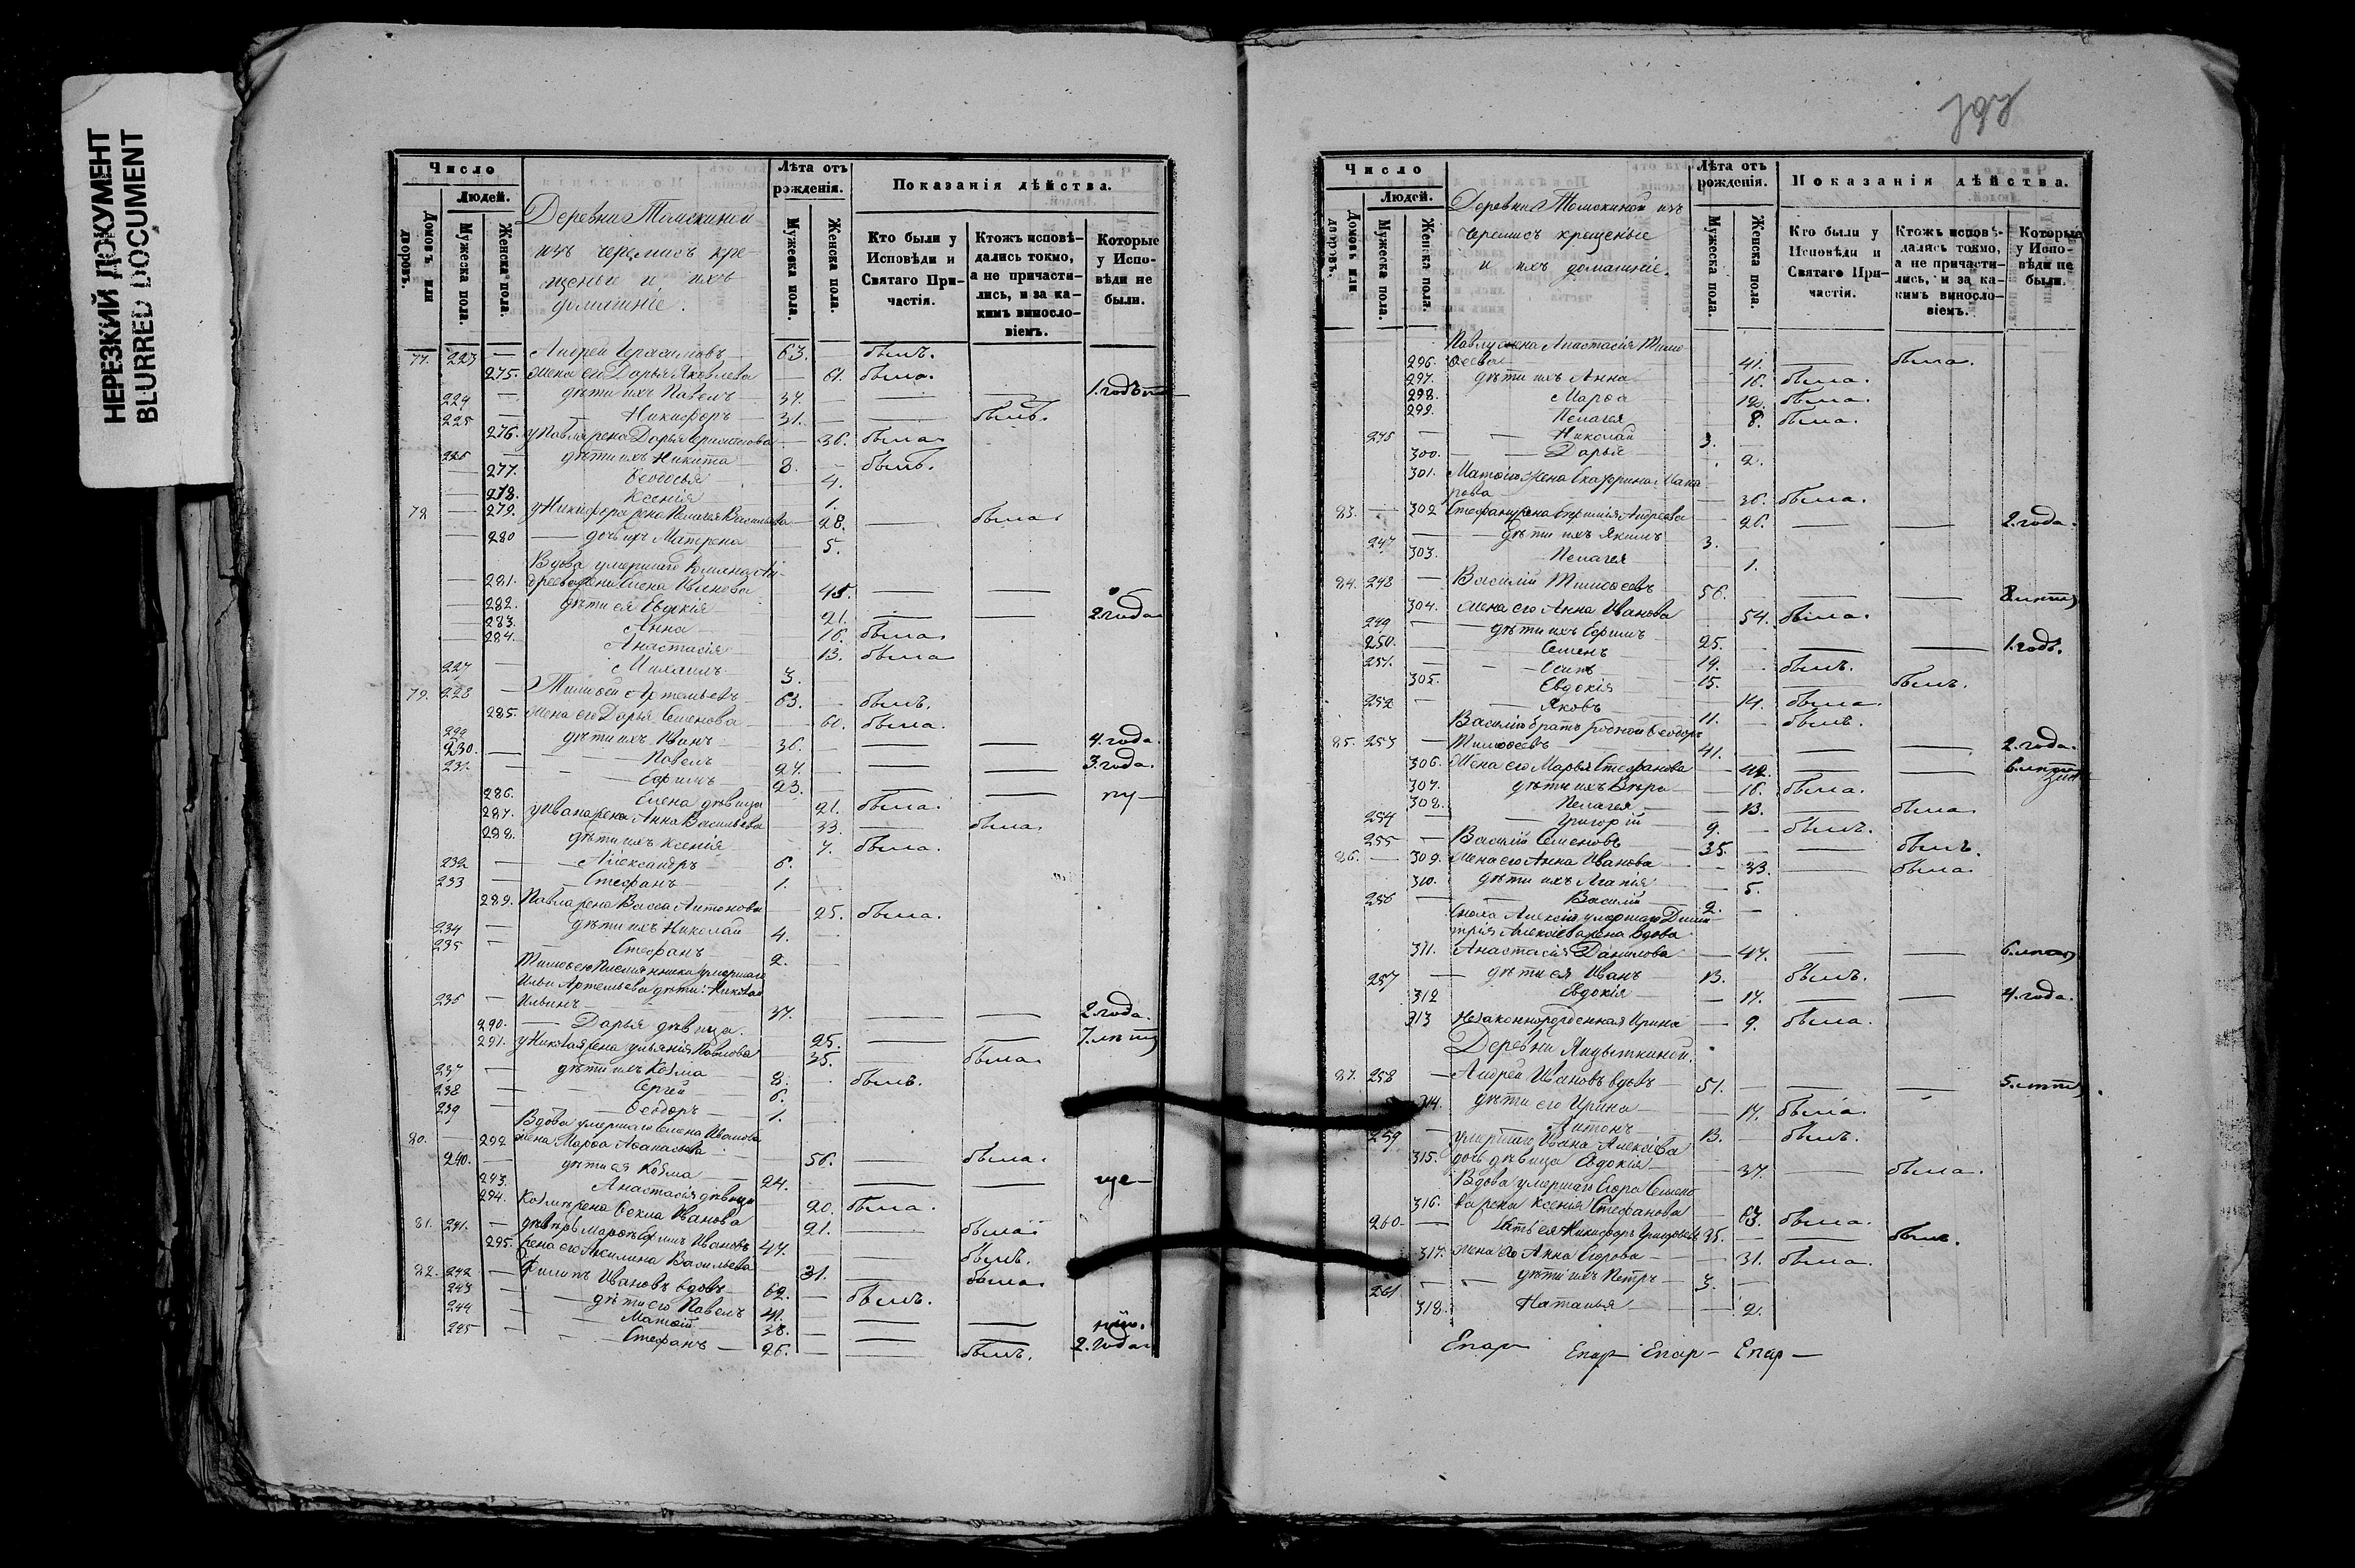 НЕРЕЗКИЙ ДОКУМЕНТ
BLURRED DOCUMENT
Число
Людей.
Домовъ или дворовъ.
Мужеска пола.
Женска пола.
Деревни Томскиной
изъ черемисъ кре-
щеные и ихъ
домашніе.
Лѣта отъ рожденія.
Мужеска пола.
Женска пола.
Показанія дѣйства.
Кто были у Исповѣди и Святаго При-частія.
Ктожъ исповѣ-дались токмо, а не причасти-лись, и за ка-кимъ винословіемъ.
Которые у Испо-вѣди не были.
77. 223 — Андрей Герасимовъ 63. былъ.
275. Жена его Дарья Яковлева 61. была.
224 — дѣти ихъ Павелъ 34. — — 1. годъ
225 — Никифоръ 31. — былъ.
276. у Павла жена Дарья 36. была
226 — дѣти ихъ Никита 8. былъ.
277. Ѳеодосья 4.
278. Ксенія 1.
78 — 279. у Никифора жена Пелагея Васильева 28. — была
280 — дочь ихъ Матрена 5.
Вдова умершаго Ан-
281. дреева жена Елена Иванова 45. — —
282. дѣти ея Евдокія 21. — — 2. года
283. Анна 16. была
284. Анастасія 13. была
227 — Михаилъ 3.
79. 228 — Тимоѳей Артемьевъ 63. былъ.
285. Жена его Дарья Семенова 60. была.
229 дѣти ихъ Иванъ 36. — — 4. года.
230. — Павелъ 27. — — 3. года.
231. — Ефимъ 23. — —
286. Елена дѣвица 21. была.
287. у Ивана жена Анна Васильева 33. — была.
288. дѣти ихъ Ксенія 7. была.
232 — Александръ 6.
233 — Стефанъ 1.
289. Павла жена Васса Антонова 25. была.
234 — дѣти ихъ Николай 4.
235 — Стефанъ 2.
Тимоѳею племянники умершаго
Ильи Артемьева дѣти: Николай
236 — Ильинъ 37. — — 2. года.
290. — Дарья дѣвица. 25. — — 7. лѣтъ
291. у Николая жена Ульянія Павлова 35. была
237 — дѣти ихъ Козма 8. былъ.
238 — Сергей 6.
239 — Ѳеодоръ 1.
Вдова умершаго Семена Иванова
80. — 292 жена Марѳа Аѳанасьева 56. — была.
240. — дѣти ея Козма 24. — —
293. Анастасія дѣвица 20. была.
294. Козмы жена Ѳекла Иванова 21. — была
81. 241. — Ефимъ Ивановъ 47. былъ.
295. жена его Акилина Васильева 31. — была
82. 242 — Филипъ Ивановъ вдовъ 62. — былъ.
243 — дѣти его Павелъ 41. — —
244 — Матѳій 38. — —
245 — Стефанъ 26. — былъ. 2. года
Число
Людей.
Домовъ или дворовъ.
Мужеска пола.
Женска пола.
Деревни Томскиной изъ
черемисъ крещеные
и ихъ домашніе.
Лѣта отъ рожденія.
Мужеска пола.
Женска пола.
Показанія дѣйства.
Кто были у Исповѣди и Святаго При-частія.
Ктожъ исповѣ-дались токмо, а не причасти-лись, и за ка-кимъ винословіемъ.
Которые у Испо-вѣди не были.
Павлу жена Анастасія Тимо-
296. ѳеева 41. — была.
297. дѣти ихъ Анна 16. была.
298. Марѳа 12. была.
299. Пелагея 8. была.
245 — Николай 3.
300. — Дарья 2.
301. Матѳію жена Екатерина Мака
рова 36. была.
83. — 302 Стефану жена Андреева 26. — — 2. года.
247 — дѣти ихъ Якимъ 3.
303. Пелагея 1.
84. 248 — Василій Тимоѳеевъ 56. — — 8 лѣтъ
304. Жена его Анна Иванова 54. была.
249 — дѣти ихъ Ефимъ 25. — — 1. годъ.
250. — Семенъ 19. былъ.
251. — Осипъ 15. — былъ.
305. Евдокія 14. была.
252 — Яковъ 11. былъ.
Василію братъ родной Ѳеодоръ
85. 253 — Тимоѳеевъ 41. — — 2. года.
306. Жена его Марья Стефанова 42. — — 6. лѣтъ
307. дѣти ихъ Вѣра 16. была.
308. Пелагея 13. — была
254 — Григорій 9. былъ.
255 — Василій Семеновъ 35. — былъ.
86. — 309. Жена его Анна Иванова 33. — была
310. дѣти ихъ Агапія 5.
256 — Василій 2.
Сноха Алексія умершаго Дими-
трія Алексіева жена вдова
311. Анастасія Данилова 47. — — 6. лѣтъ
257 — дѣти ея Иванъ 13. былъ.
312 Евдокія 17. — — 4. года.
313 Незаконнорожденная Ирина 9. была.
Деревни Андыткиной.
87. 258 — Андрей Ивановъ вдовъ 51. — — 5. лѣтъ
314. дѣти его Ирина 17. была.
259 — Антонъ 13. былъ.
умершаго Ивана Алексіева
315. дочь дѣвица Евдокія 37. — была.
Вдова умершаго Егора Семено
316. ва жена Ксенія Стефанова 63. была.
260 — Зять ея Никифоръ Григорьевъ 35. — былъ.
317. жена его Анна Егорова 31. была.
261 — дѣти ихъ Петръ 3.
318. Наталья 2.